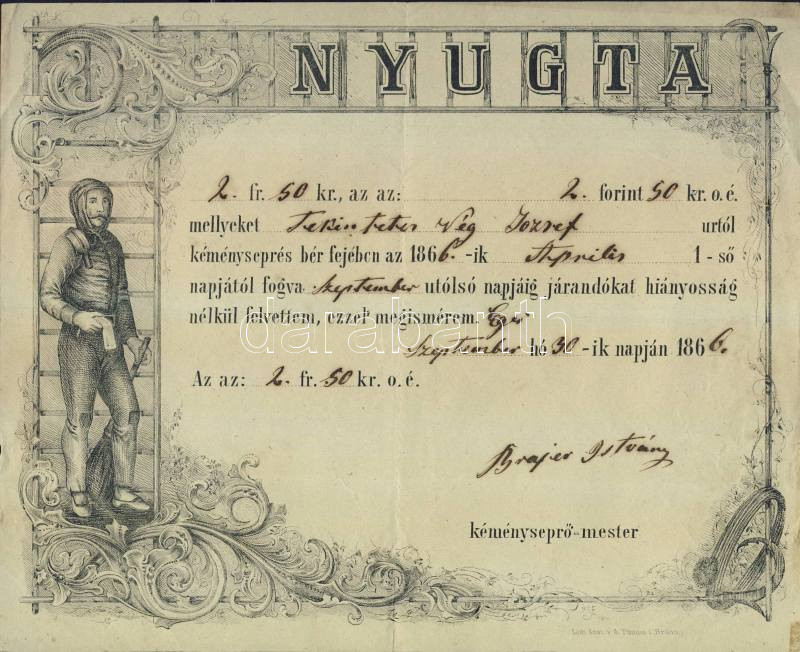 NYUGTA
2. fr. 50 kr., az az: 2. forint 50 kr. o. é.
mellyeket Tekintetes Vég Jozsef urtól
kéményseprés bér fejében az 1866.-ik Aprilis 1-ső
napjától fogva September utólsó napjáig járandókat hiányosság
nélkül felvettem, ezzel megismérem. Eger
September hó 30-ik napján 1866.
Az az: 2. fr. 50 kr. o. é.
Brajer István
kéményseprő-mester
darabanth